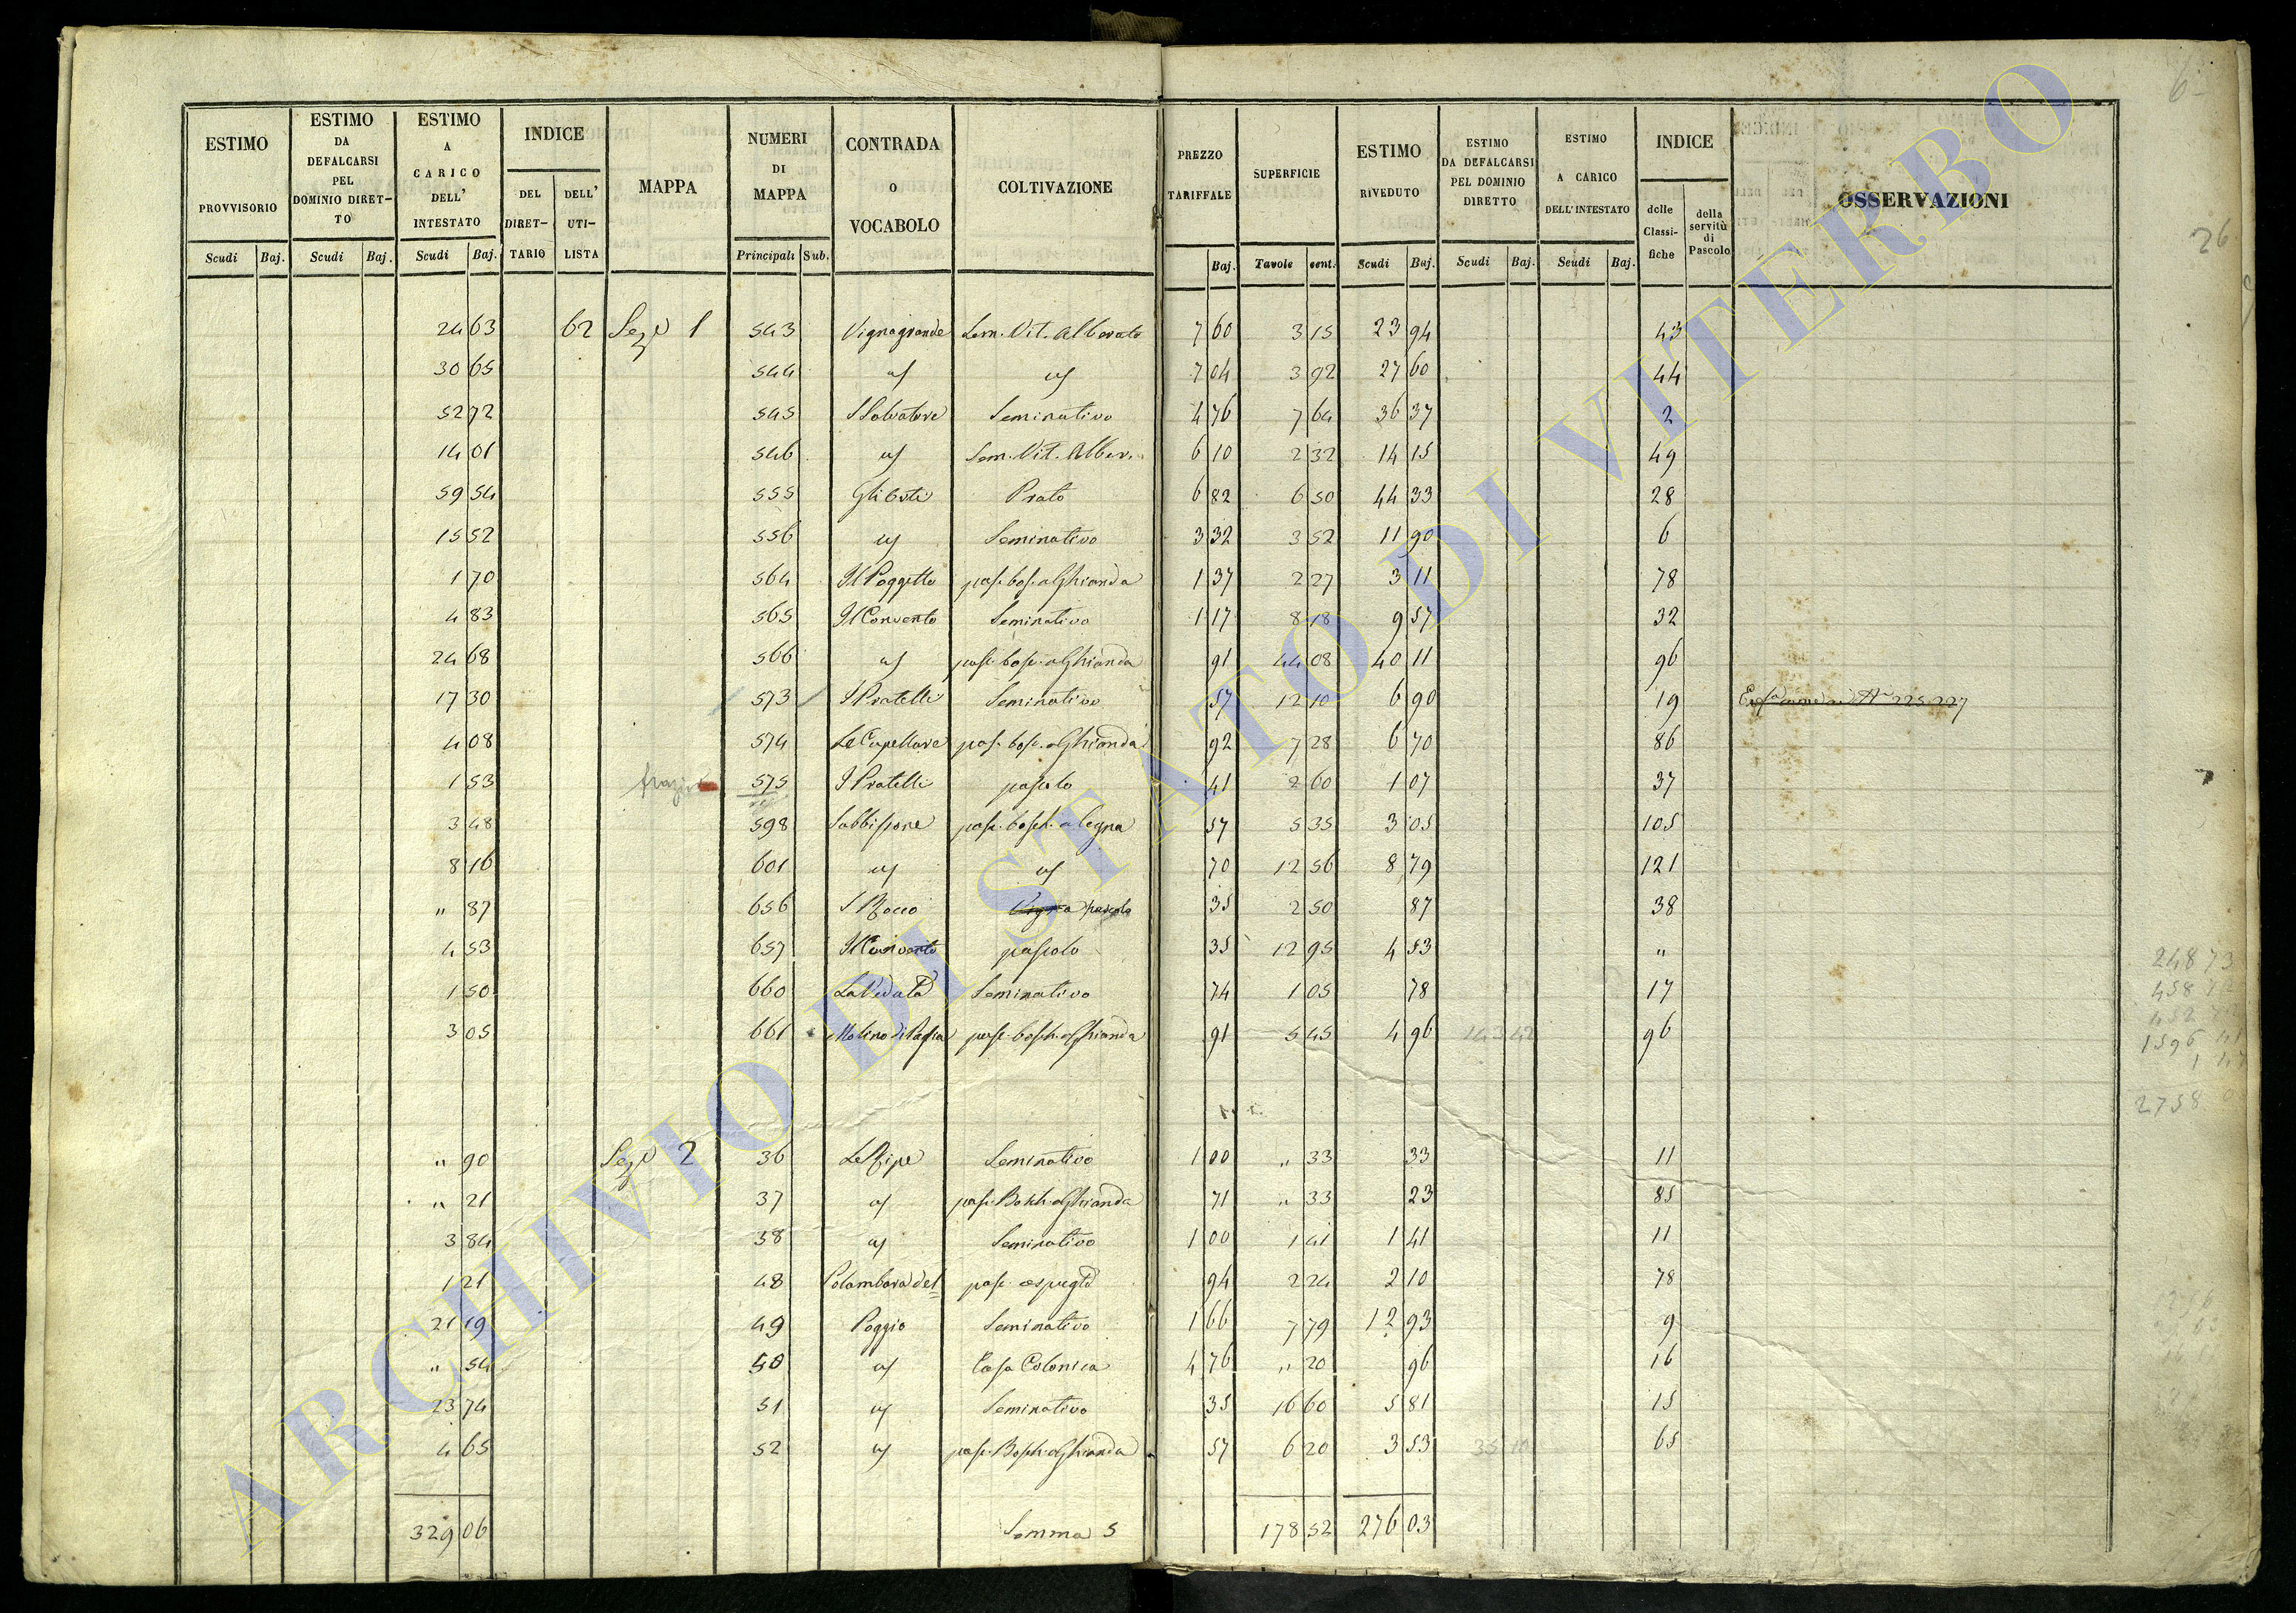 ESTIMO PROVVISORIO Scudi Baj. | ESTIMO DA DEFALCARSI PEL DOMINIO DIRET-TO Scudi Baj. | ESTIMO A CARICO DELL' INTESTATO Scudi Baj. | INDICE DEL DIRET-TARIO DELL' UTI-LISTA | MAPPA | NUMERI DI MAPPA Principali Sub. | CONTRADA O VOCABOLO | COLTIVAZIONE | PREZZO TARIFFALE Baj. | SUPERFICIE Tavole cent. | ESTIMO RIVEDUTO Scudi Baj. | ESTIMO DA DEFALCARSI PEL DOMINIO DIRETTO Scudi Baj. | ESTIMO A CARICO DELL'INTESTATO Scudi Baj. | INDICE delle Classi-fiche della servitù di Pascolo | OSSERVAZIONI
24 63 62 Sezᵉ 1 543 Vignagrande Sem. Vit. Alberato 7 60 3 15 23 94 43
30 65 544 " " 7 04 3 92 27 60 44
52 72 545 S Salvatore Seminativo 4 76 7 64 36 37 2
14 01 546 " Sem. Vit. Alber. 6 10 2 32 14 15 49
59 54 555 Gli Orti Prato 6 82 6 50 44 33 28
15 52 556 " Seminativo 3 32 3 52 11 90 6
1 70 564 Il Poggetto pas. bos. a Ghianda 1 37 2 27 3 11 78
4 83 565 Il Convento Seminativo 1 17 8 18 9 57 32
24 68 566 " pas. bos. a Ghianda 91 44 08 40 11 96
17 30 573 I Pratelli Seminativo 57 12 10 6 90 19
4 08 574 Le Capellare pas. bos. a Ghianda 92 7 28 6 70 86
1 53 575 I Pratelli pascolo 41 2 60 1 07 37
3 48 598 Sabbisione pas. bosch. a legna 57 5 35 3 05 105
8 16 601 " " 70 12 56 8 79 121
" 87 656 S Rocco Vigna pascolo 35 2 50 87 38
4 53 657 Il Convento pascolo 35 12 95 4 53 "
1 50 660 La Veduta Seminativo 74 1 05 78 17
3 05 661 Molino di Paglia pas. bosch. a Ghianda 91 5 45 4 96 143 42 96
" 90 Sezᵉ 2 36 Le Ripe Seminativo 1 00 " 33 33 11
" 21 37 " pas. Bosch. a Ghianda 71 " 33 23 85
3 84 38 " Seminativo 1 00 1 41 1 41 11
1 21 48 Colombara del pas. cespugto 94 2 24 2 10 78
21 19 49 Poggio Seminativo 1 66 7 79 12 93 9
" 54 50 " Casa Colonica 4 76 " 20 96 16
13 74 51 " Seminativo 35 16 60 5 81 15
4 65 52 " pas. Bosch. a Ghianda 57 6 20 3 53 35 10 65
329 06 Somma S 178 52 276 03
26
2758
ARCHIVIO DI STATO DI VITERBO